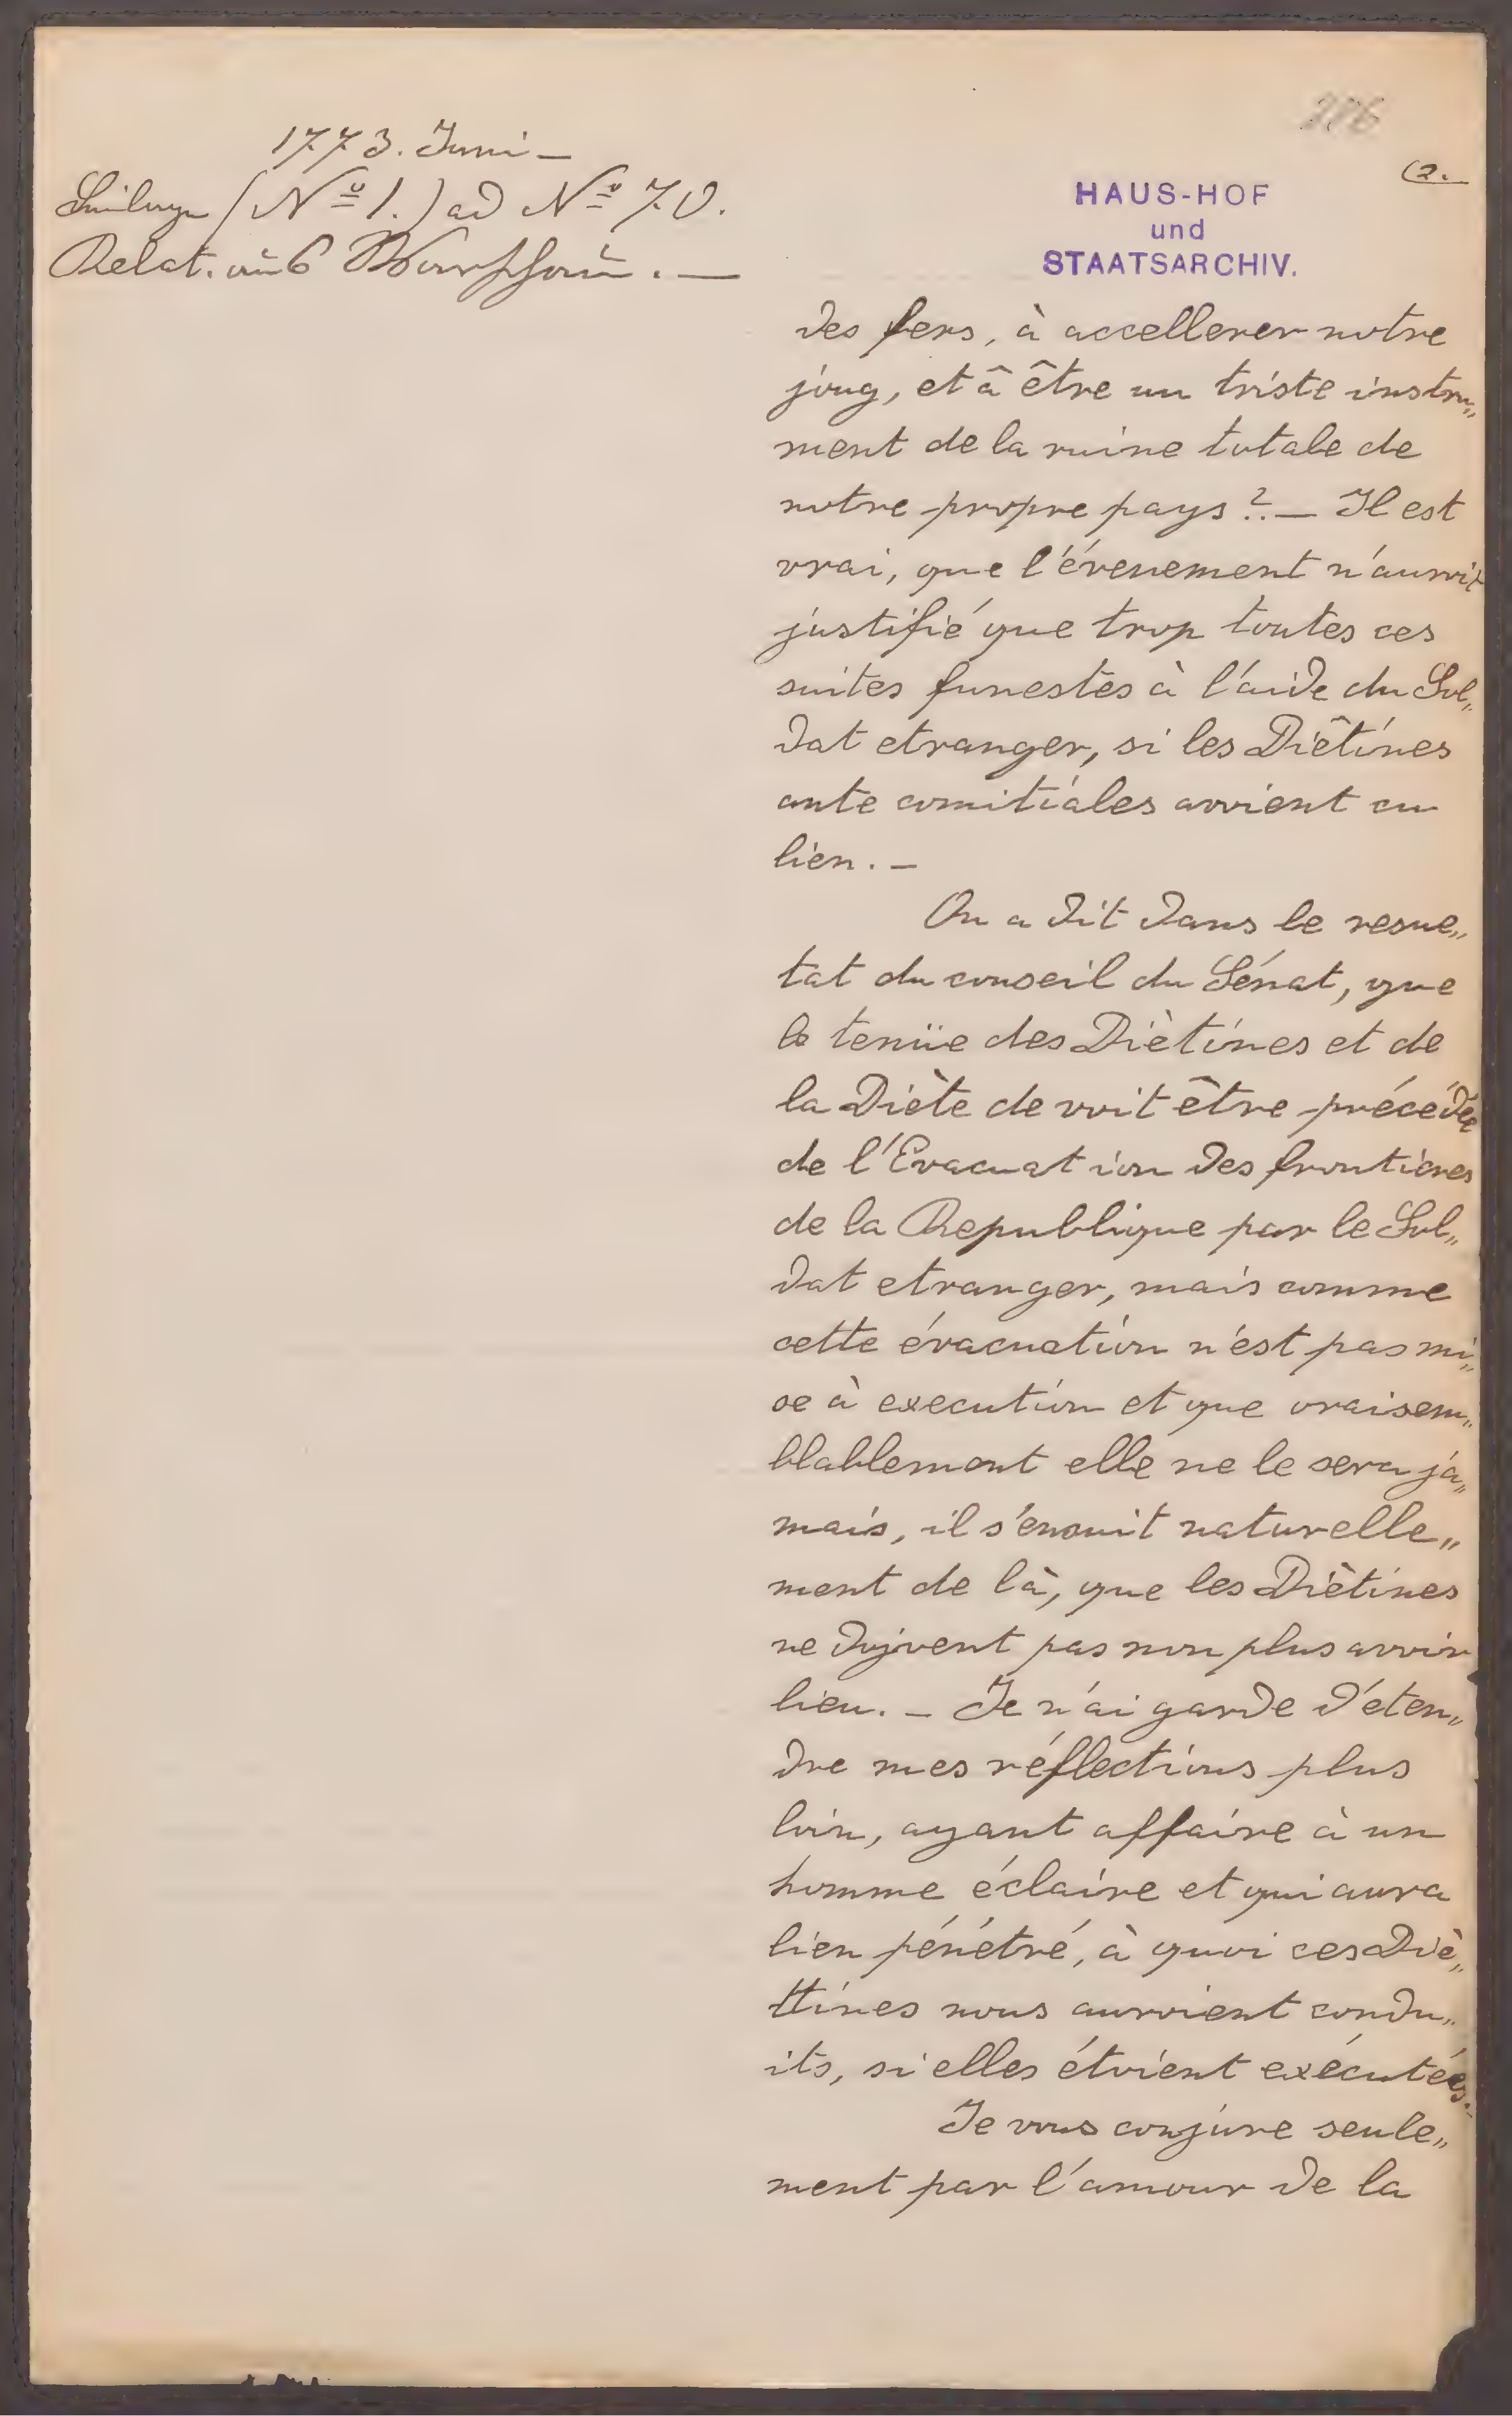 286
(2.
1773. Juni —
Beilage (Nº 1.) ad Nº 70.
Relat. aus Warschau. —
HAUS-HOF
und
STAATSARCHIV.
des fers, à accellerer notre
joug, et â être un triste instru„
ment de la ruine totale de
notre propre pays?. — Il est
vrai, que l'évenement n'auroit
justifié que trop toutes ces
suites funestes à l'aide du Sol„
dat etranger, si les Diêtines
ante comitiales avoient eu
lieu. —
On a dit dans le resue„
tat du conseil du Sénat, que
la tenüe des Diètines et de
la Diète devoit être précédée
de l'Evacuation des frontieres
de la Republique par le Sol„
dat etranger, mais comme
cette évacuation n'est pas mi„
se à execution et que vraisem„
blablement elle ne le sera ja„
mais, il s'ensuit naturelle„
ment de là, que les Diètines
ne doivent pas non plus avoir
lieu. — Je n'ai garde d'éten„
dre mes réflections plus
loin, ayant affaire à un
homme éclaire et qui aura
bien pénétré, à quoi ces Diè„
ttines nous auroient condu„
its, si elles étoient exécutées.
Je vous conjure seule„
ment par l'amour de la